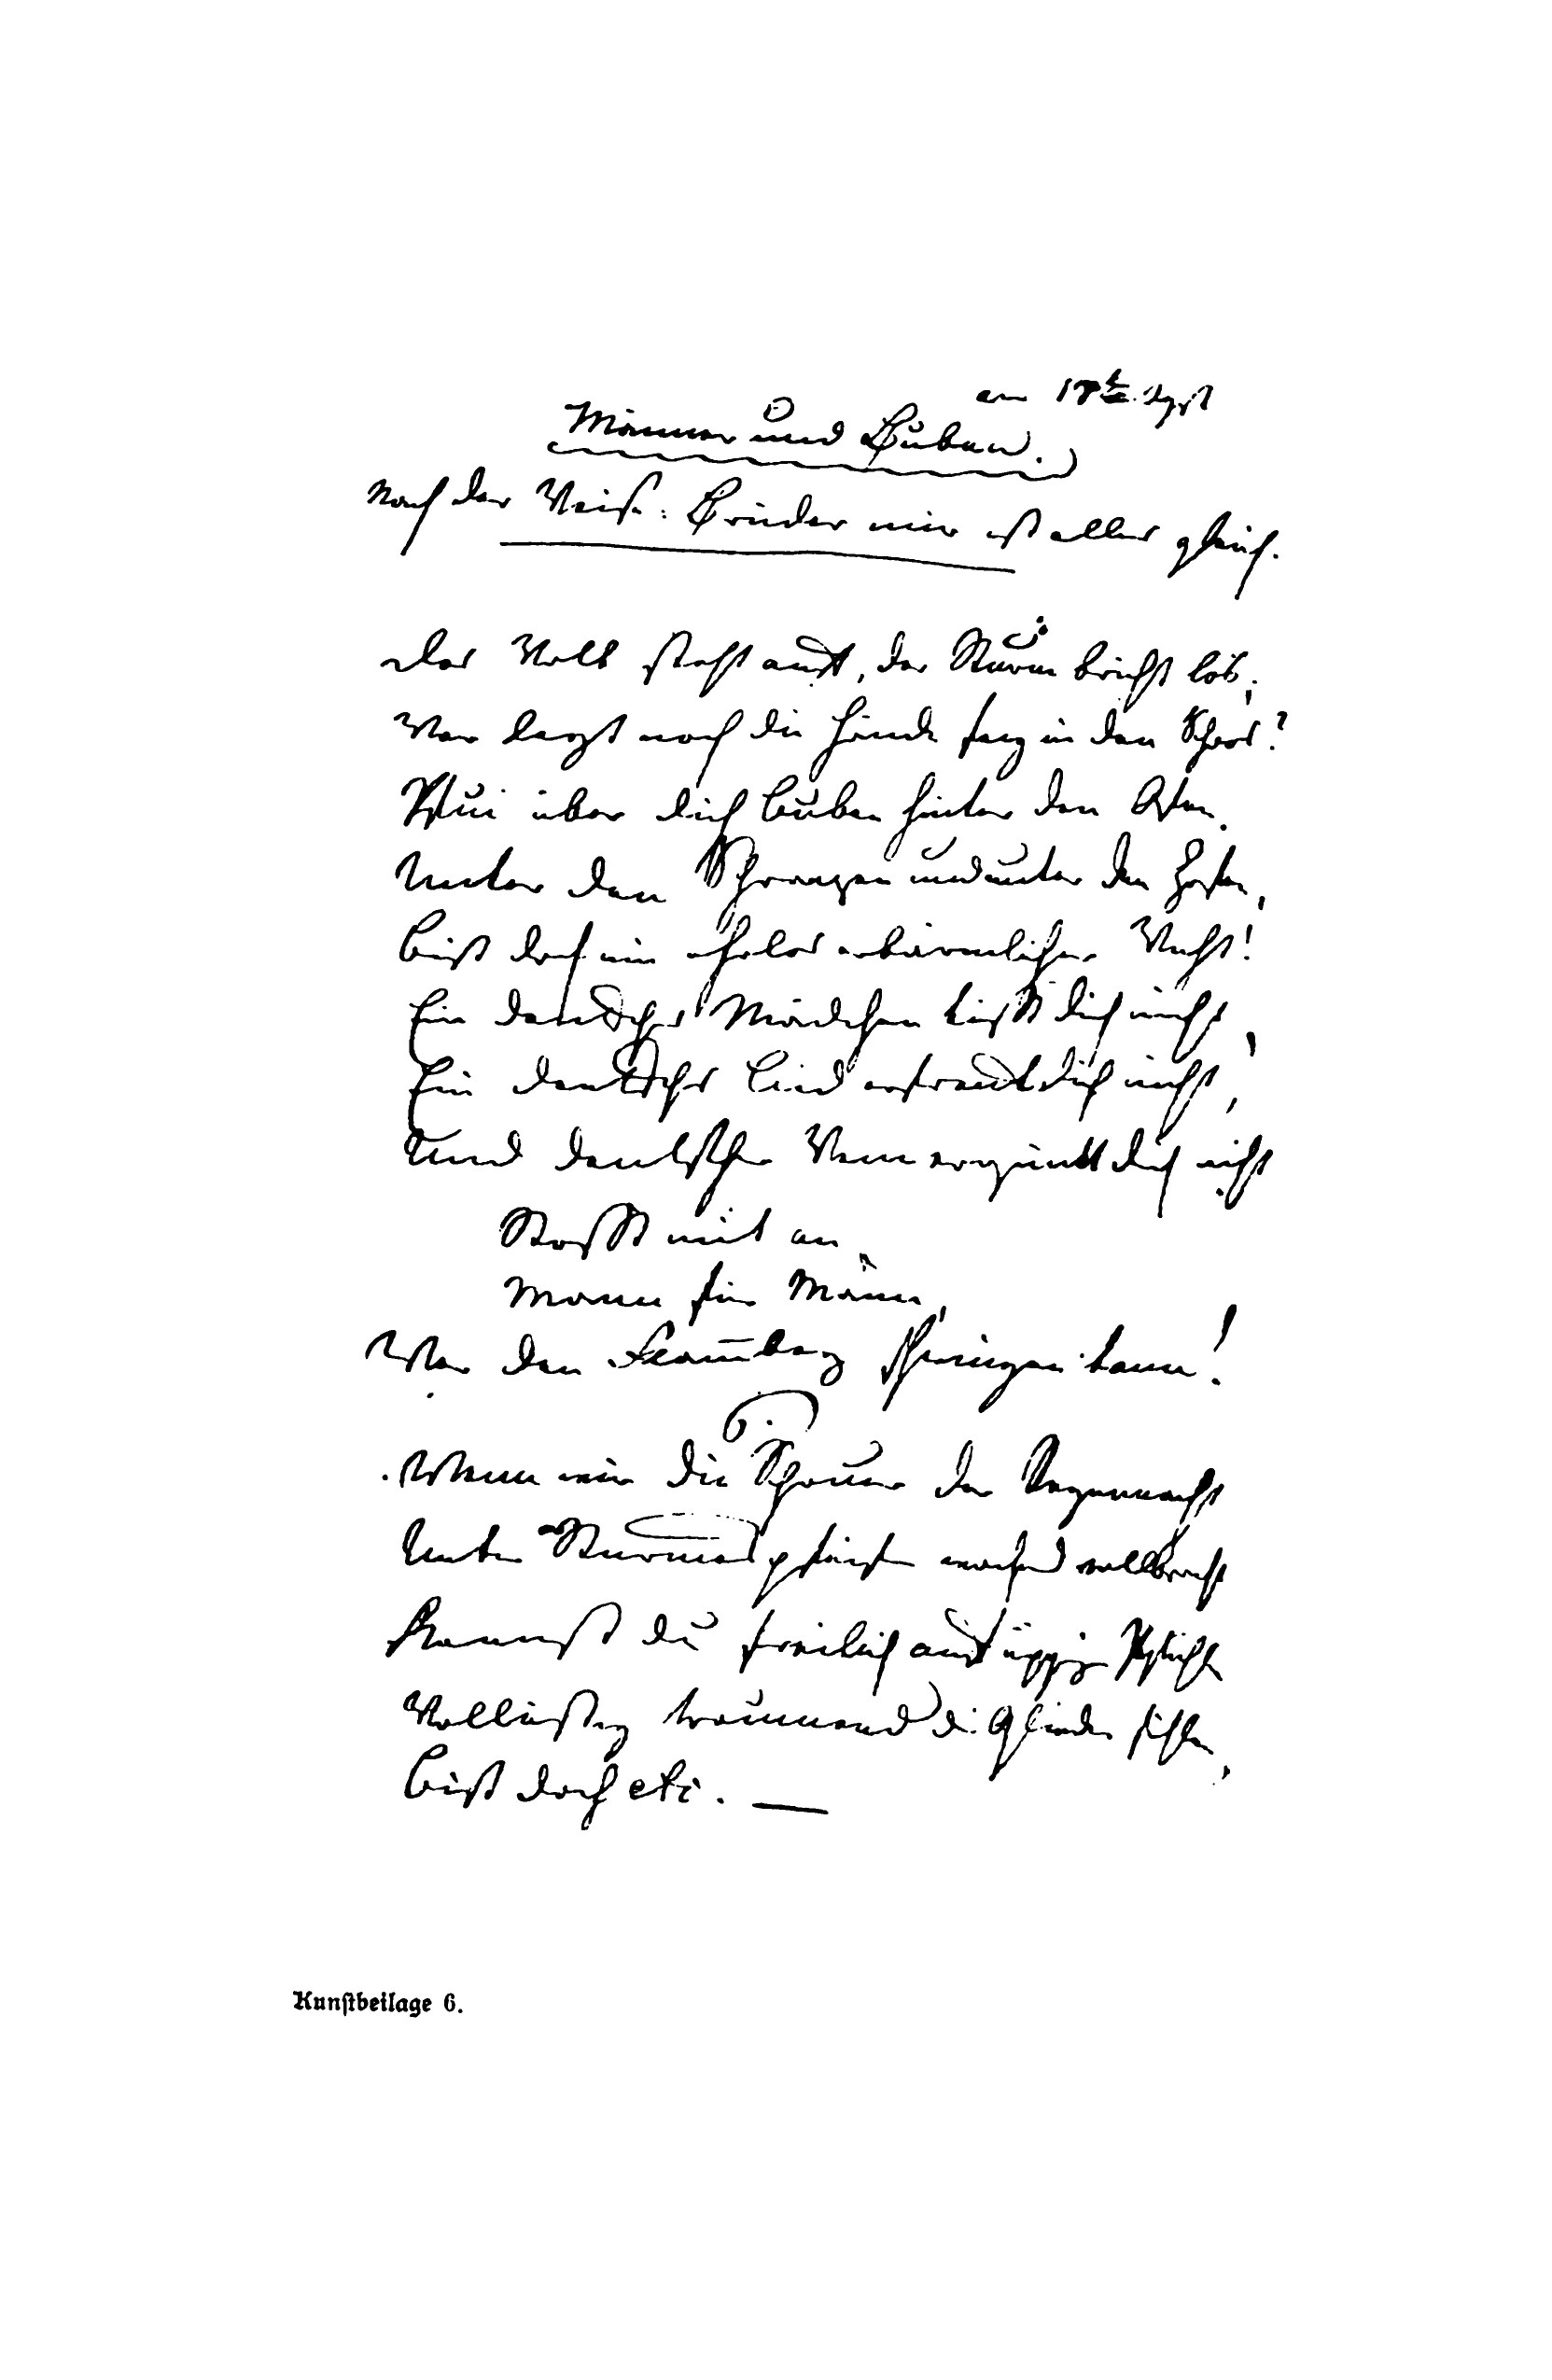 am 18t
Männer und Buben.
Nach der Weise: Brüder mir ist alles gleich.
Das Volk steht auf, der Sturm bricht los;
Wer legt noch die Hände feig in den Schoos?
Pfui über dich Buben hinter den Ofen,
Unter den Schranzen und unter den Zofen,
Bist doch ein ehrlos erbärmlicher Wicht!
Ein deutsches Mädchen küßt dich nicht,
Ein deutsches Lied erfreut dich nicht,
Und deutscher Wein erquickt dich nicht
Stoßt mit an,
Mann für Mann,
Wer den Flamberg schwingen kann!
Wenn wir die Schauer der Regennacht
Unter Sturmespfeifen wachend vollbracht
Kannst du freilich auf üppigen Pfühlen
Wollüstig träumend die Glieder fühlen,
Bist doch etc. —
Kunstbeilage 6.